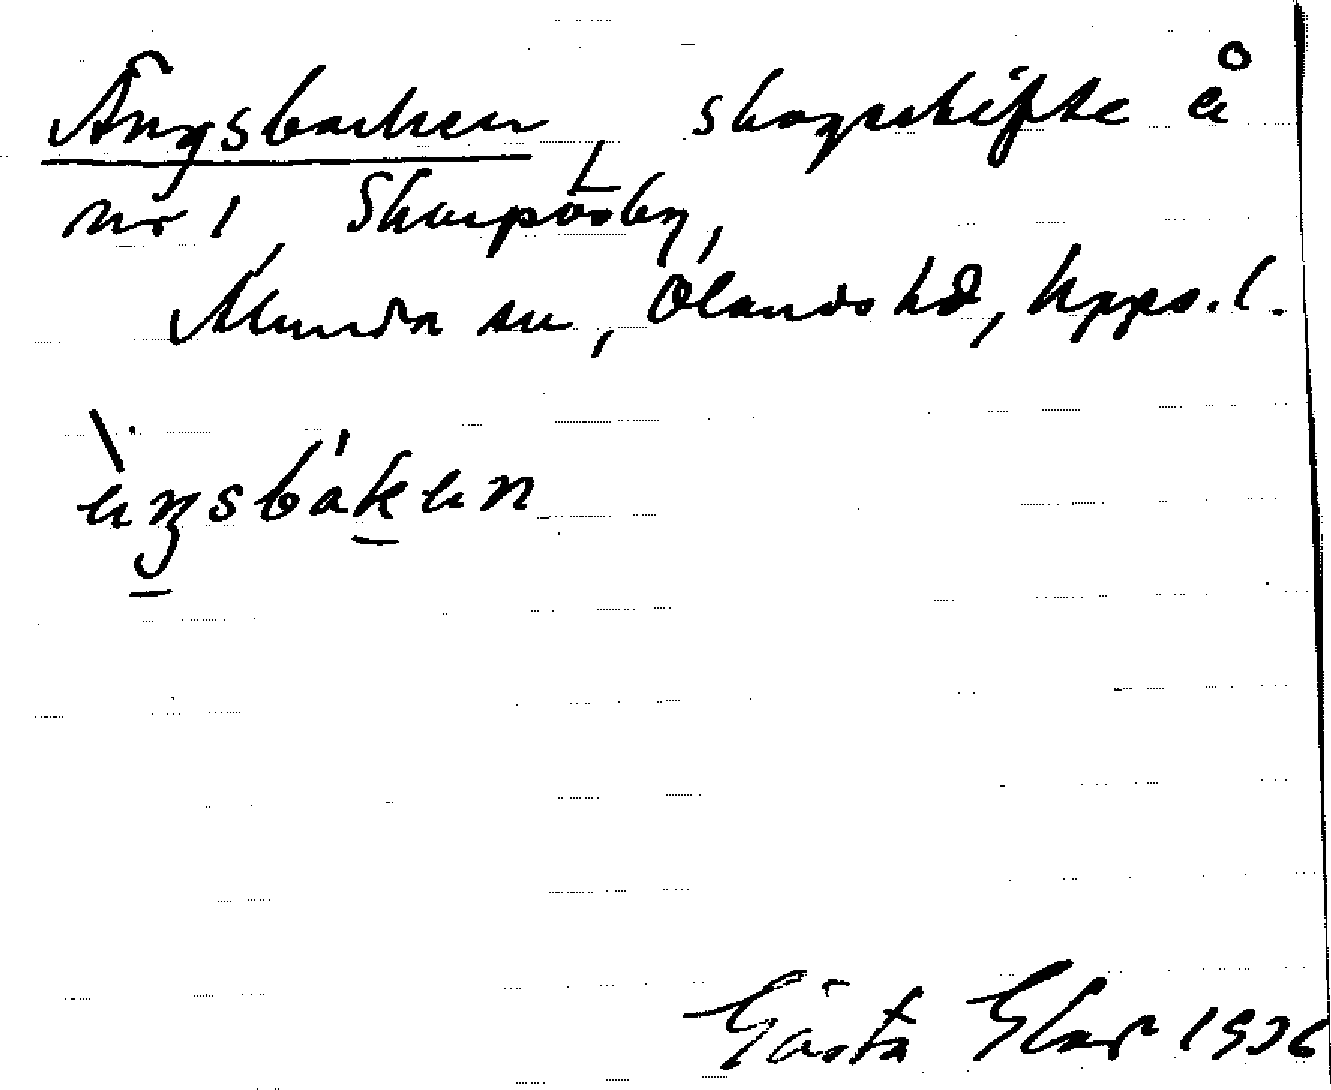 Ängsbacken, skogsskifte å
nr 1 Skarpåsby,
Alunda sn, Ölands hd, Upps. l.
ängsbákän
Gösta